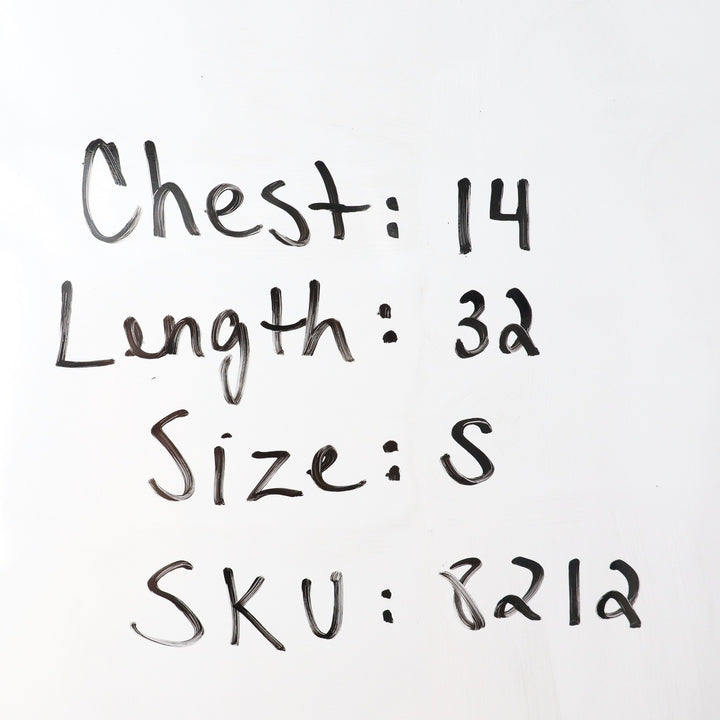 Chest: 14
Length: 32
Size: S
SKU: 8212